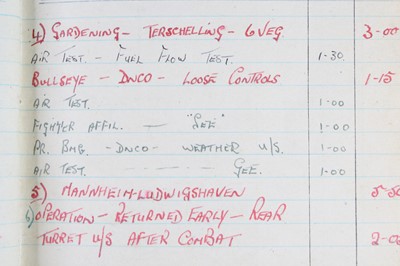 4) GARDENING - TERSCHELLING - 6 VEG. 3-00
AIR TEST. - FUEL FLOW TEST. 1-30
BULLSEYE - DNCO - LOOSE CONTROLS 1-15
AIR TEST. 1-00
FIGHTER AFFIL. — "GEE" 1-00
PR. BMG. - DNCO - WEATHER U/S. 1-00
AIR TEST. - - - GEE. 1-00
5) MANNHEIM-LUDWIGSHAVEN
6) OPERATION - RETURNED EARLY - REAR
TURRET U/S AFTER COMBAT